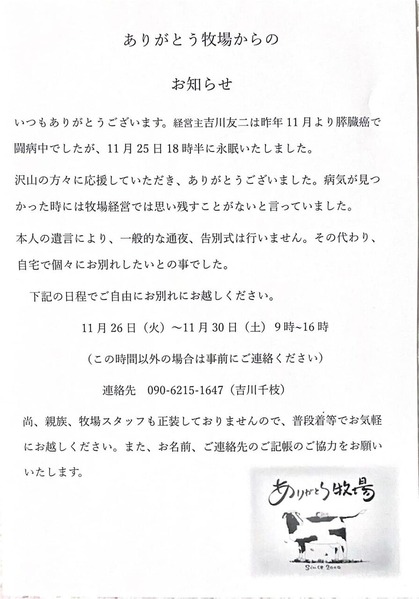 ありがとう牧場からの
お知らせ
いつもありがとうございます。経営主吉川友二は昨年 11 月より膵臓癌で
闘病中でしたが、11 月 25 日 18 時半に永眠いたしました。
沢山の方々に応援していただき、ありがとうございました。病気が見つ
かった時には牧場経営では思い残すことがないと言っていました。
本人の遺言により、一般的な通夜、告別式は行いません。その代わり、
自宅で個々にお別れしたいとの事でした。
下記の日程でご自由にお別れにお越しください。
11 月 26 日（火）～11 月 30 日（土）9 時~16 時
（この時間以外の場合は事前にご連絡ください）
連絡先　090-6215-1647（吉川千枝）
尚、親族、牧場スタッフも正装しておりませんので、普段着等でお気軽
にお越しください。また、お名前、ご連絡先のご記帳のご協力をお願い
いたします。
ありがとう牧場
Since 2000